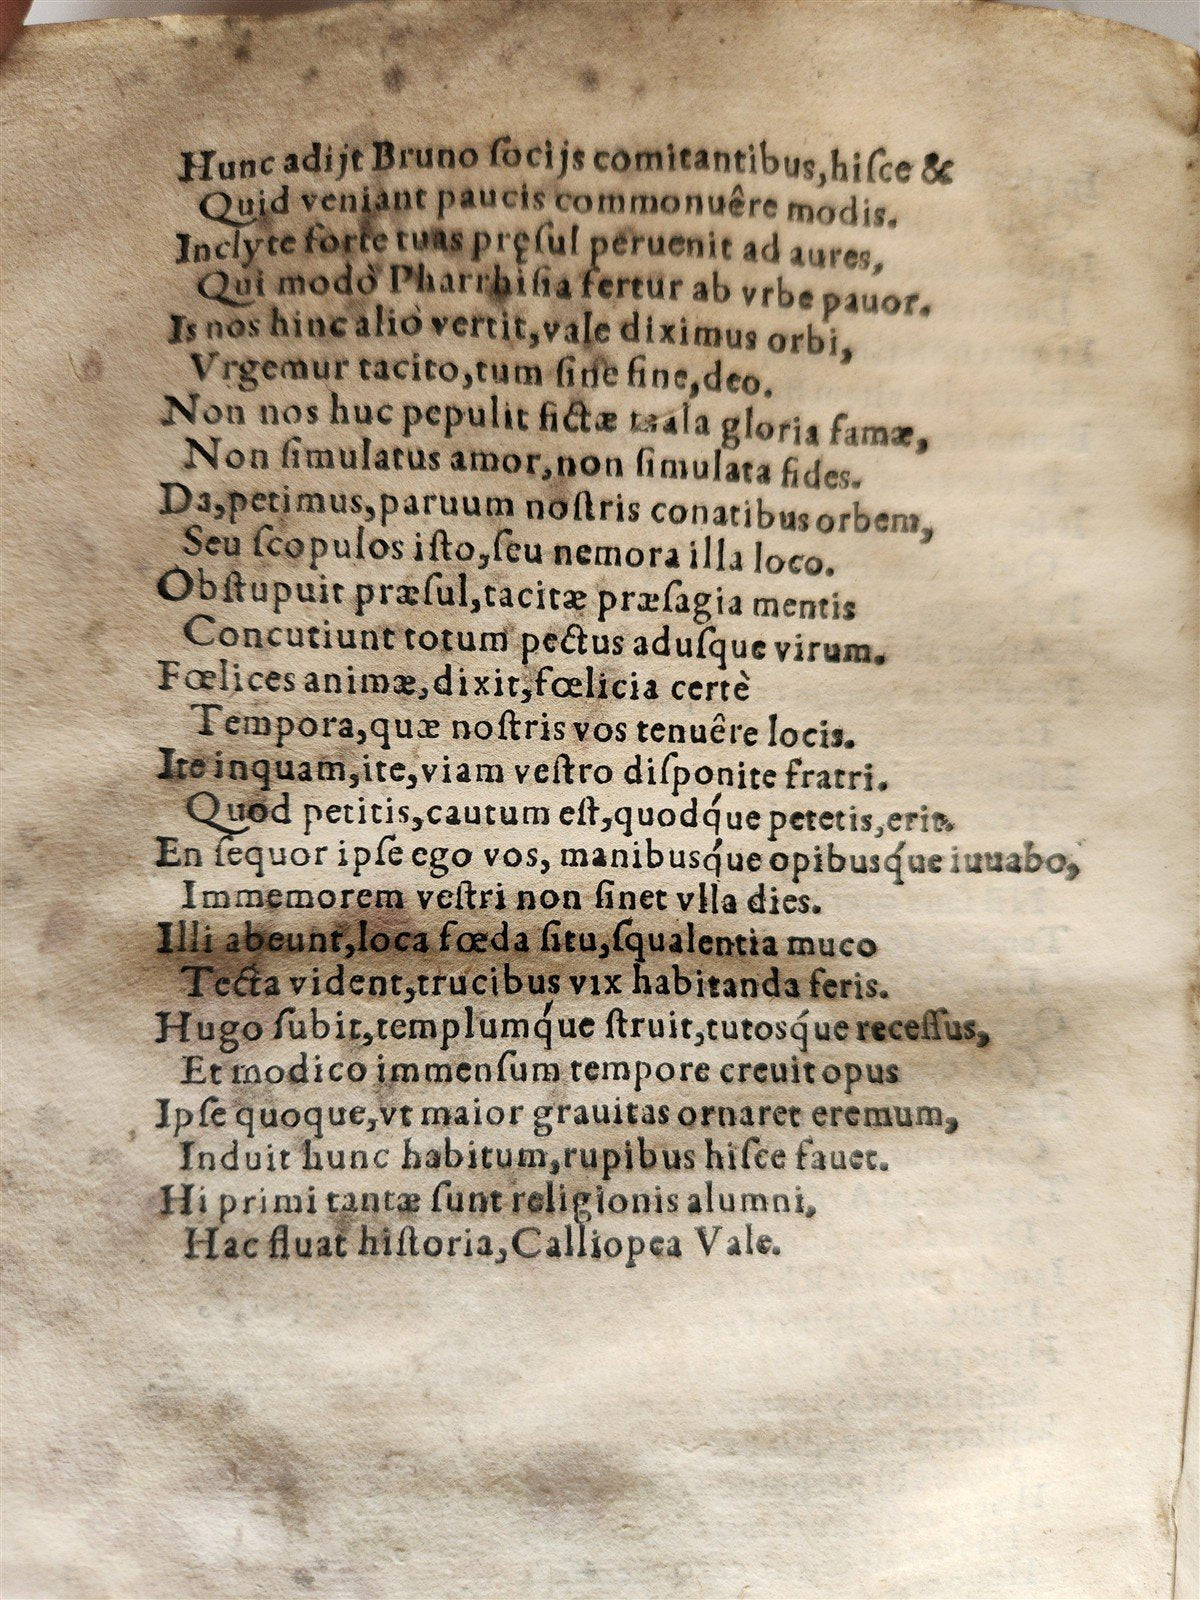 Hunc adijt Bruno ſocijs comitantibus, hiſce &
Quid veniant paucis commonuêre modis.
Inclyte forte tuas pręſul peruenit ad aures,
Qui modò Pharrhiſia fertur ab vrbe pauor.
Is nos hinc aliò vertit, vale diximus orbi,
Vrgemur tacito, tum ſine fine, deo.
Non nos huc pepulit fictæ mala gloria famæ,
Non ſimulatus amor, non ſimulata fides.
Da, petimus, paruum noſtris conatibus orbem,
Seu ſcopulos iſto, ſeu nemora illa loco.
Obſtupuit præſul, tacitæ præſagia mentis
Concutiunt totum pectus aduſque virum.
Fœlices animæ, dixit, fœlicia certè
Tempora, quæ noſtris vos tenuêre locis.
Ite inquam, ite, viam veſtro diſponite fratri.
Quod petitis, cautum eſt, quodq́ue petetis, erit.
En ſequor ipſe ego vos, manibusq́ue opibusq́ue iuuabo,
Immemorem veſtri non ſinet vlla dies.
Illi abeunt, loca fœda ſitu, ſqualentia muco
Tecta vident, trucibus vix habitanda feris.
Hugo ſubit, templumq́ue ſtruit, tutosq́ue receſſus,
Et modico immenſum tempore creuit opus
Ipſe quoque, vt maior grauitas ornaret eremum,
Induit hunc habitum, rupibus hiſce fauet.
Hi primi tantæ ſunt religionis alumni,
Hac fluat hiſtoria, Calliopea Vale.